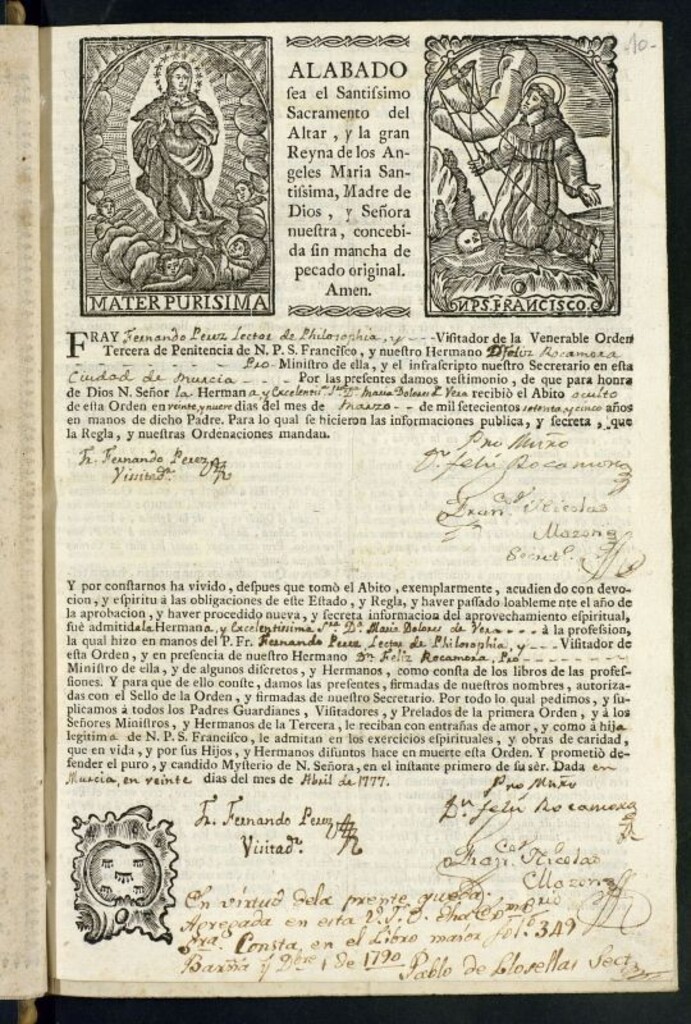 10-
ALABADO
sea el Santissimo
Sacramento del
Altar, y la gran
Reyna de los An-
geles Maria San-
tissima, Madre de
Dios, y Señora
nuestra, concebi-
da sin mancha de
pecado original.
Amen.
MATER PURISIMA
N.P.S. FRANCISCO.
FRAY Fernando Perez Lector de Philosophia, y - - - Visitador de la Venerable Orden
Tercera de Penitencia de N. P. S. Francisco, y nuestro Hermano Dn Feliz Rocamora
- - - - Pro- Ministro de ella, y el infrascripto nuestro Secretario en esta
Ciudad de Murcia - - - - Por las presentes damos testimonio, de que para honra
de Dios N. Señor la Hermana y Excelentis.a S.ra D.a Maria Dolores d. Vera recibiò el Abito oculto
de esta Orden en veinte, y nueve dias del mes de Marzo - - de mil setecientos setenta, y cinco años
en manos de dicho Padre. Para lo qual se hicieron las informaciones publica, y secreta, que
la Regla, y nuestras Ordenaciones mandan.
Fr. Fernando Perez
Visitad.r
Pro Mntro
Dn. felix Rocamora
Fran.co Nicolas
Mazon
Secret.o
Y por constarnos ha vivido, despues que tomò el Abito, exemplarmente, acudiendo con devo-
cion, y espiritu à las obligaciones de este Estado, y Regla, y haver passado loablemente el año de
la aprobacion, y haver procedido nueva, y secreta informacion del aprovechamiento espiritual,
fuè admitida la Hermana, y Excelentisima S.ra D.a Maria Dolores de Vera - - - - à la profession,
la qual hizo en manos del P. Fr. Fernando Perez, Lector de Philosophia, y - - - Visitador de
esta Orden, y en presencia de nuestro Hermano Dn. Feliz Rocamora, Pro - - - - - -
Ministro de ella, y de algunos discretos, y Hermanos, como consta de los libros de las profes-
siones. Y para que de ello conste, damos las presentes, firmadas de nuestros nombres, autoriza-
das con el Sello de la Orden, y firmadas de nuestro Secretario. Por todo lo qual pedimos, y su-
plicamos à todos los Padres Guardianes, Visitadores, y Prelados de la primera Orden, y à los
Señores Ministros, y Hermanos de la Tercera, le reciban con entrañas de amor, y como à hija
legitima de N. P. S. Francisco, le admitan en los exercicios espirituales, y obras de caridad,
que en vida, y por sus Hijos, y Hermanos difuntos hace en muerte esta Orden. Y prometiò de-
fender el puro, y candido Mysterio de N. Señora, en el instante primero de su sèr. Dada en
Murcia, en veinte dias del mes de Abril de 1777.
Fr. Fernando Perez
Visitad.r
Pro Mntro
Dn. felix Rocamora
Fran.co Nicolas
Mazon
En virtud dela prente queda
Agregada en esta V.T.O. dha
Sra. Consta, en el Libro maior fol.o 349
Barña y Dbre 1 de 1790 Pablo de Llosellas Sect.